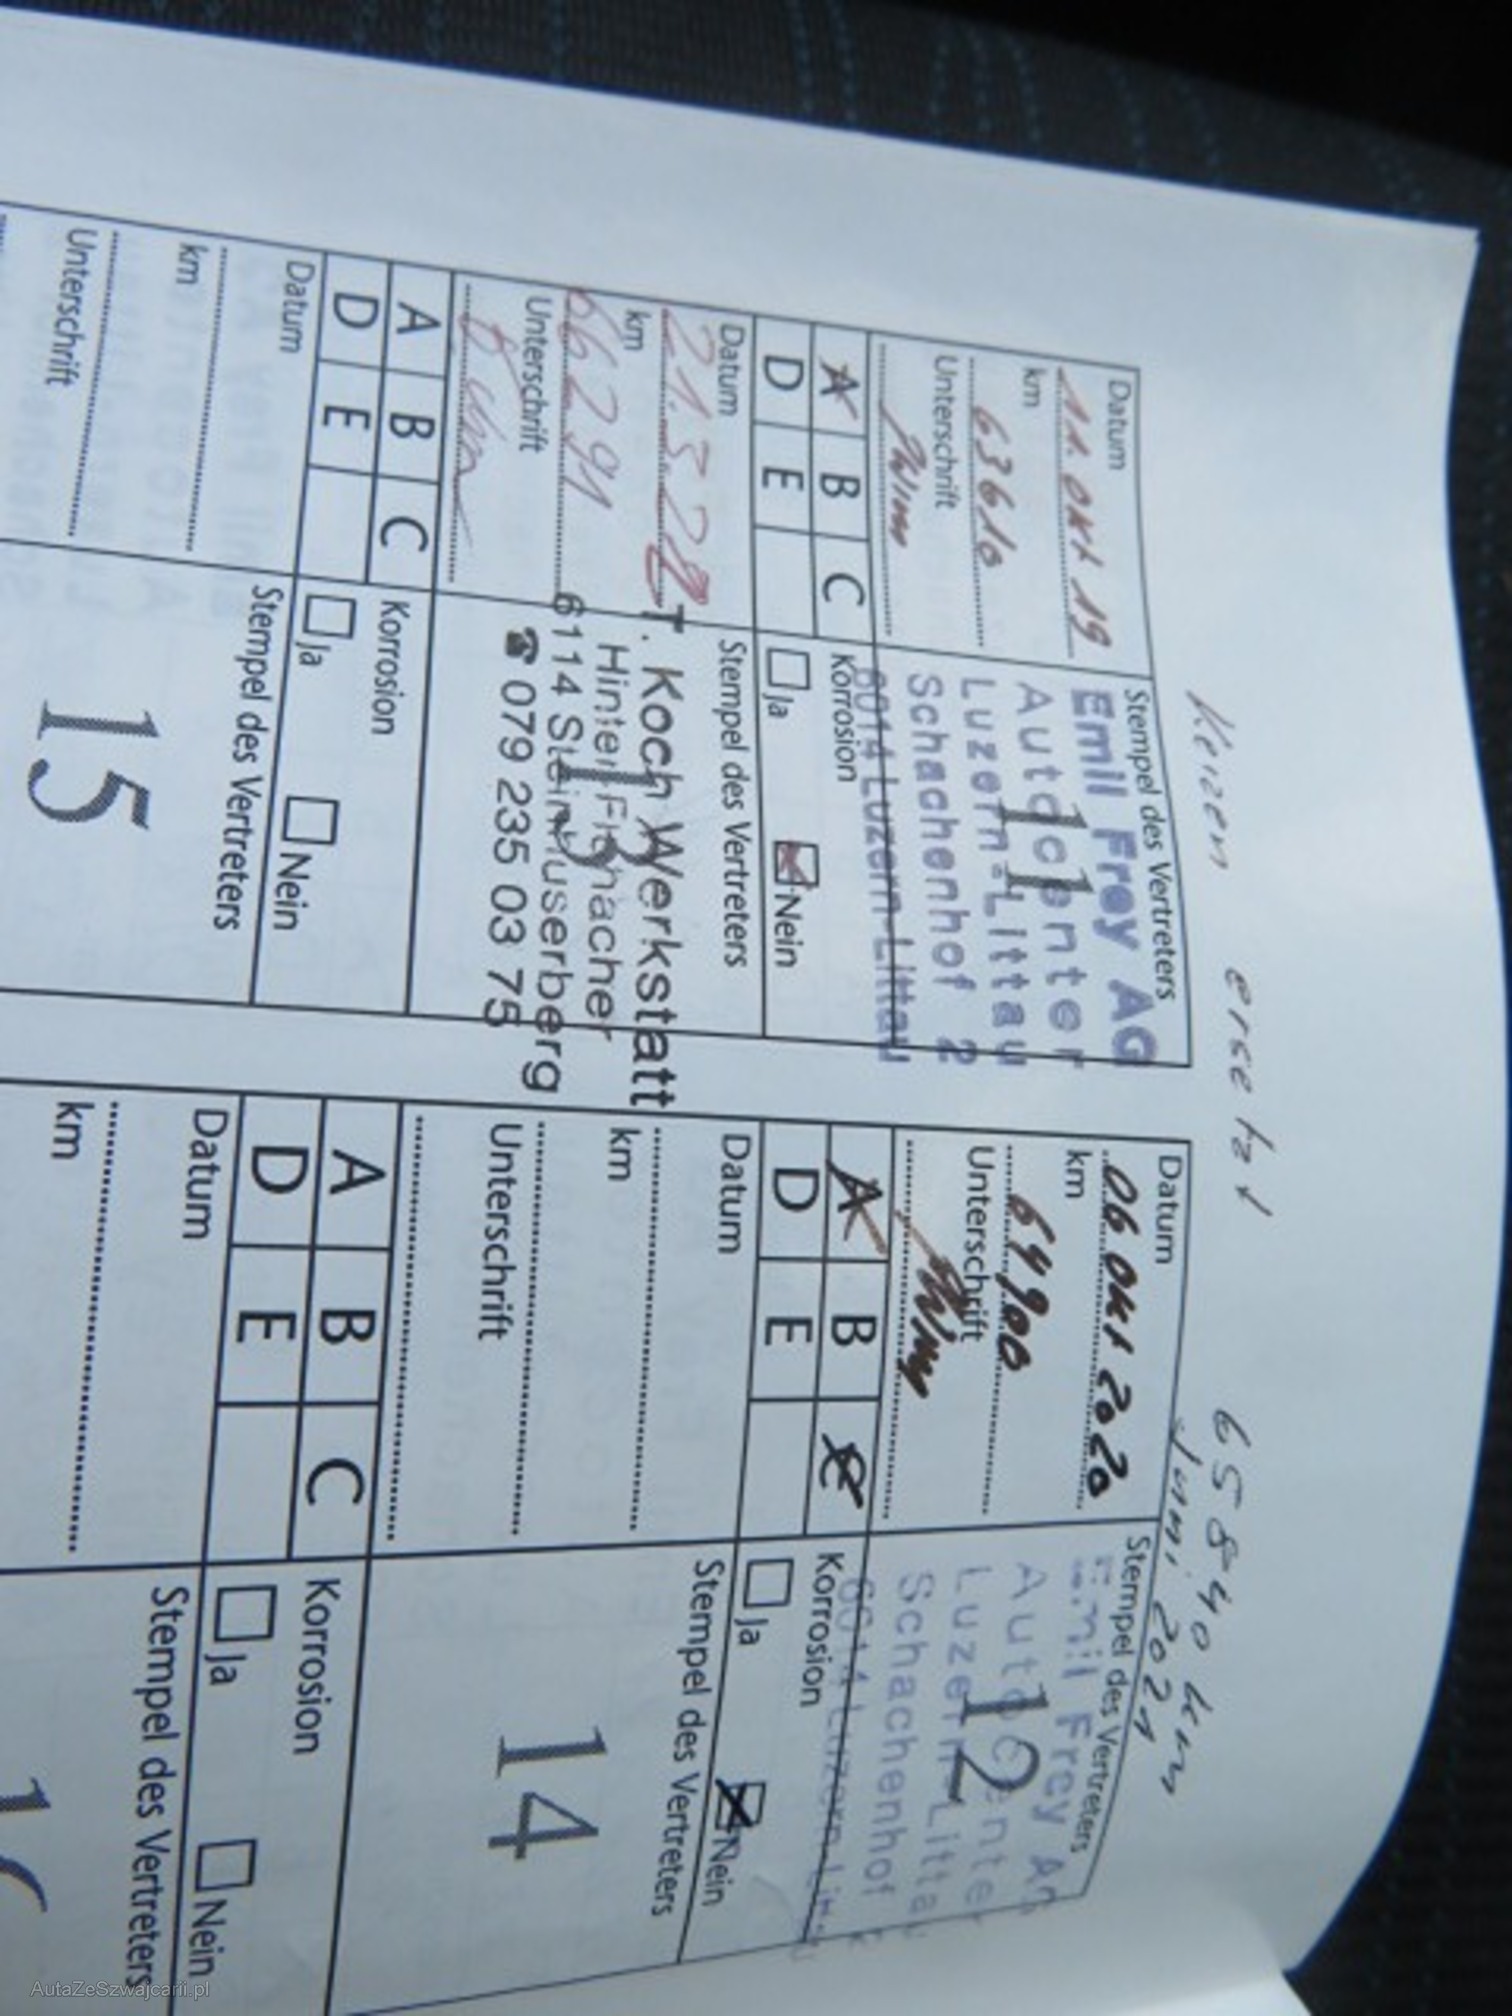 ersetzt
65840 km
Juni 2021
Datum
11. Okt 19
km
63610
Unterschrift
Stempel des Vertreters
Emil Frey AG
Autocenter
Luzern-Littau
Schachenhof 2
6014 Luzern-Littau
11
A B C
D E
Korrosion
Ja
Nein
Datum
km
66291
Unterschrift
Stempel des Vertreters
T. Koch Werkstatt
6114 Steinhuserberg
☎ 079 235 03 75
13
A B C
D E
Korrosion
Ja
Nein
Datum
km
Unterschrift
Stempel des Vertreters
15
Datum
06 Okt 2020
km
64900
Unterschrift
Stempel des Vertreters
Emil Frey AG
Autocenter
Luzern-Littau
Schachenhof 2
6014 Luzern-Littau
12
A B C
D E
Korrosion
Ja
Nein
Datum
km
Unterschrift
Stempel des Vertreters
14
A B C
D E
Korrosion
Ja
Nein
Datum
km
Stempel des Vertreters
AutaZeSzwajcarii.pl